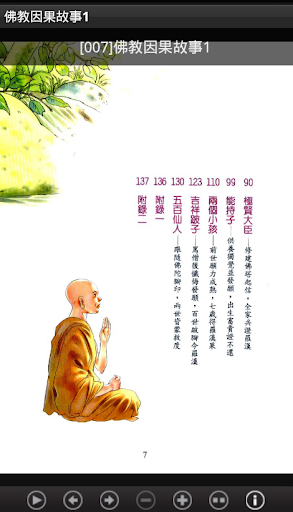 佛教因果故事1
[007]佛教因果故事1
90 極賢大臣——修建佛塔起信,全家共證羅漢
99 能持子——供養獨覺並發願,出生富貴證不還
110 兩個小孩——前世願力成熟,七歲得羅漢果
123 吉祥跛子——罵僧後懺悔發願,百世跛腳今羅漢
130 五百仙人——跟隨佛陀腳印,兩世皆蒙救度
136 附錄一
137 附錄二
7